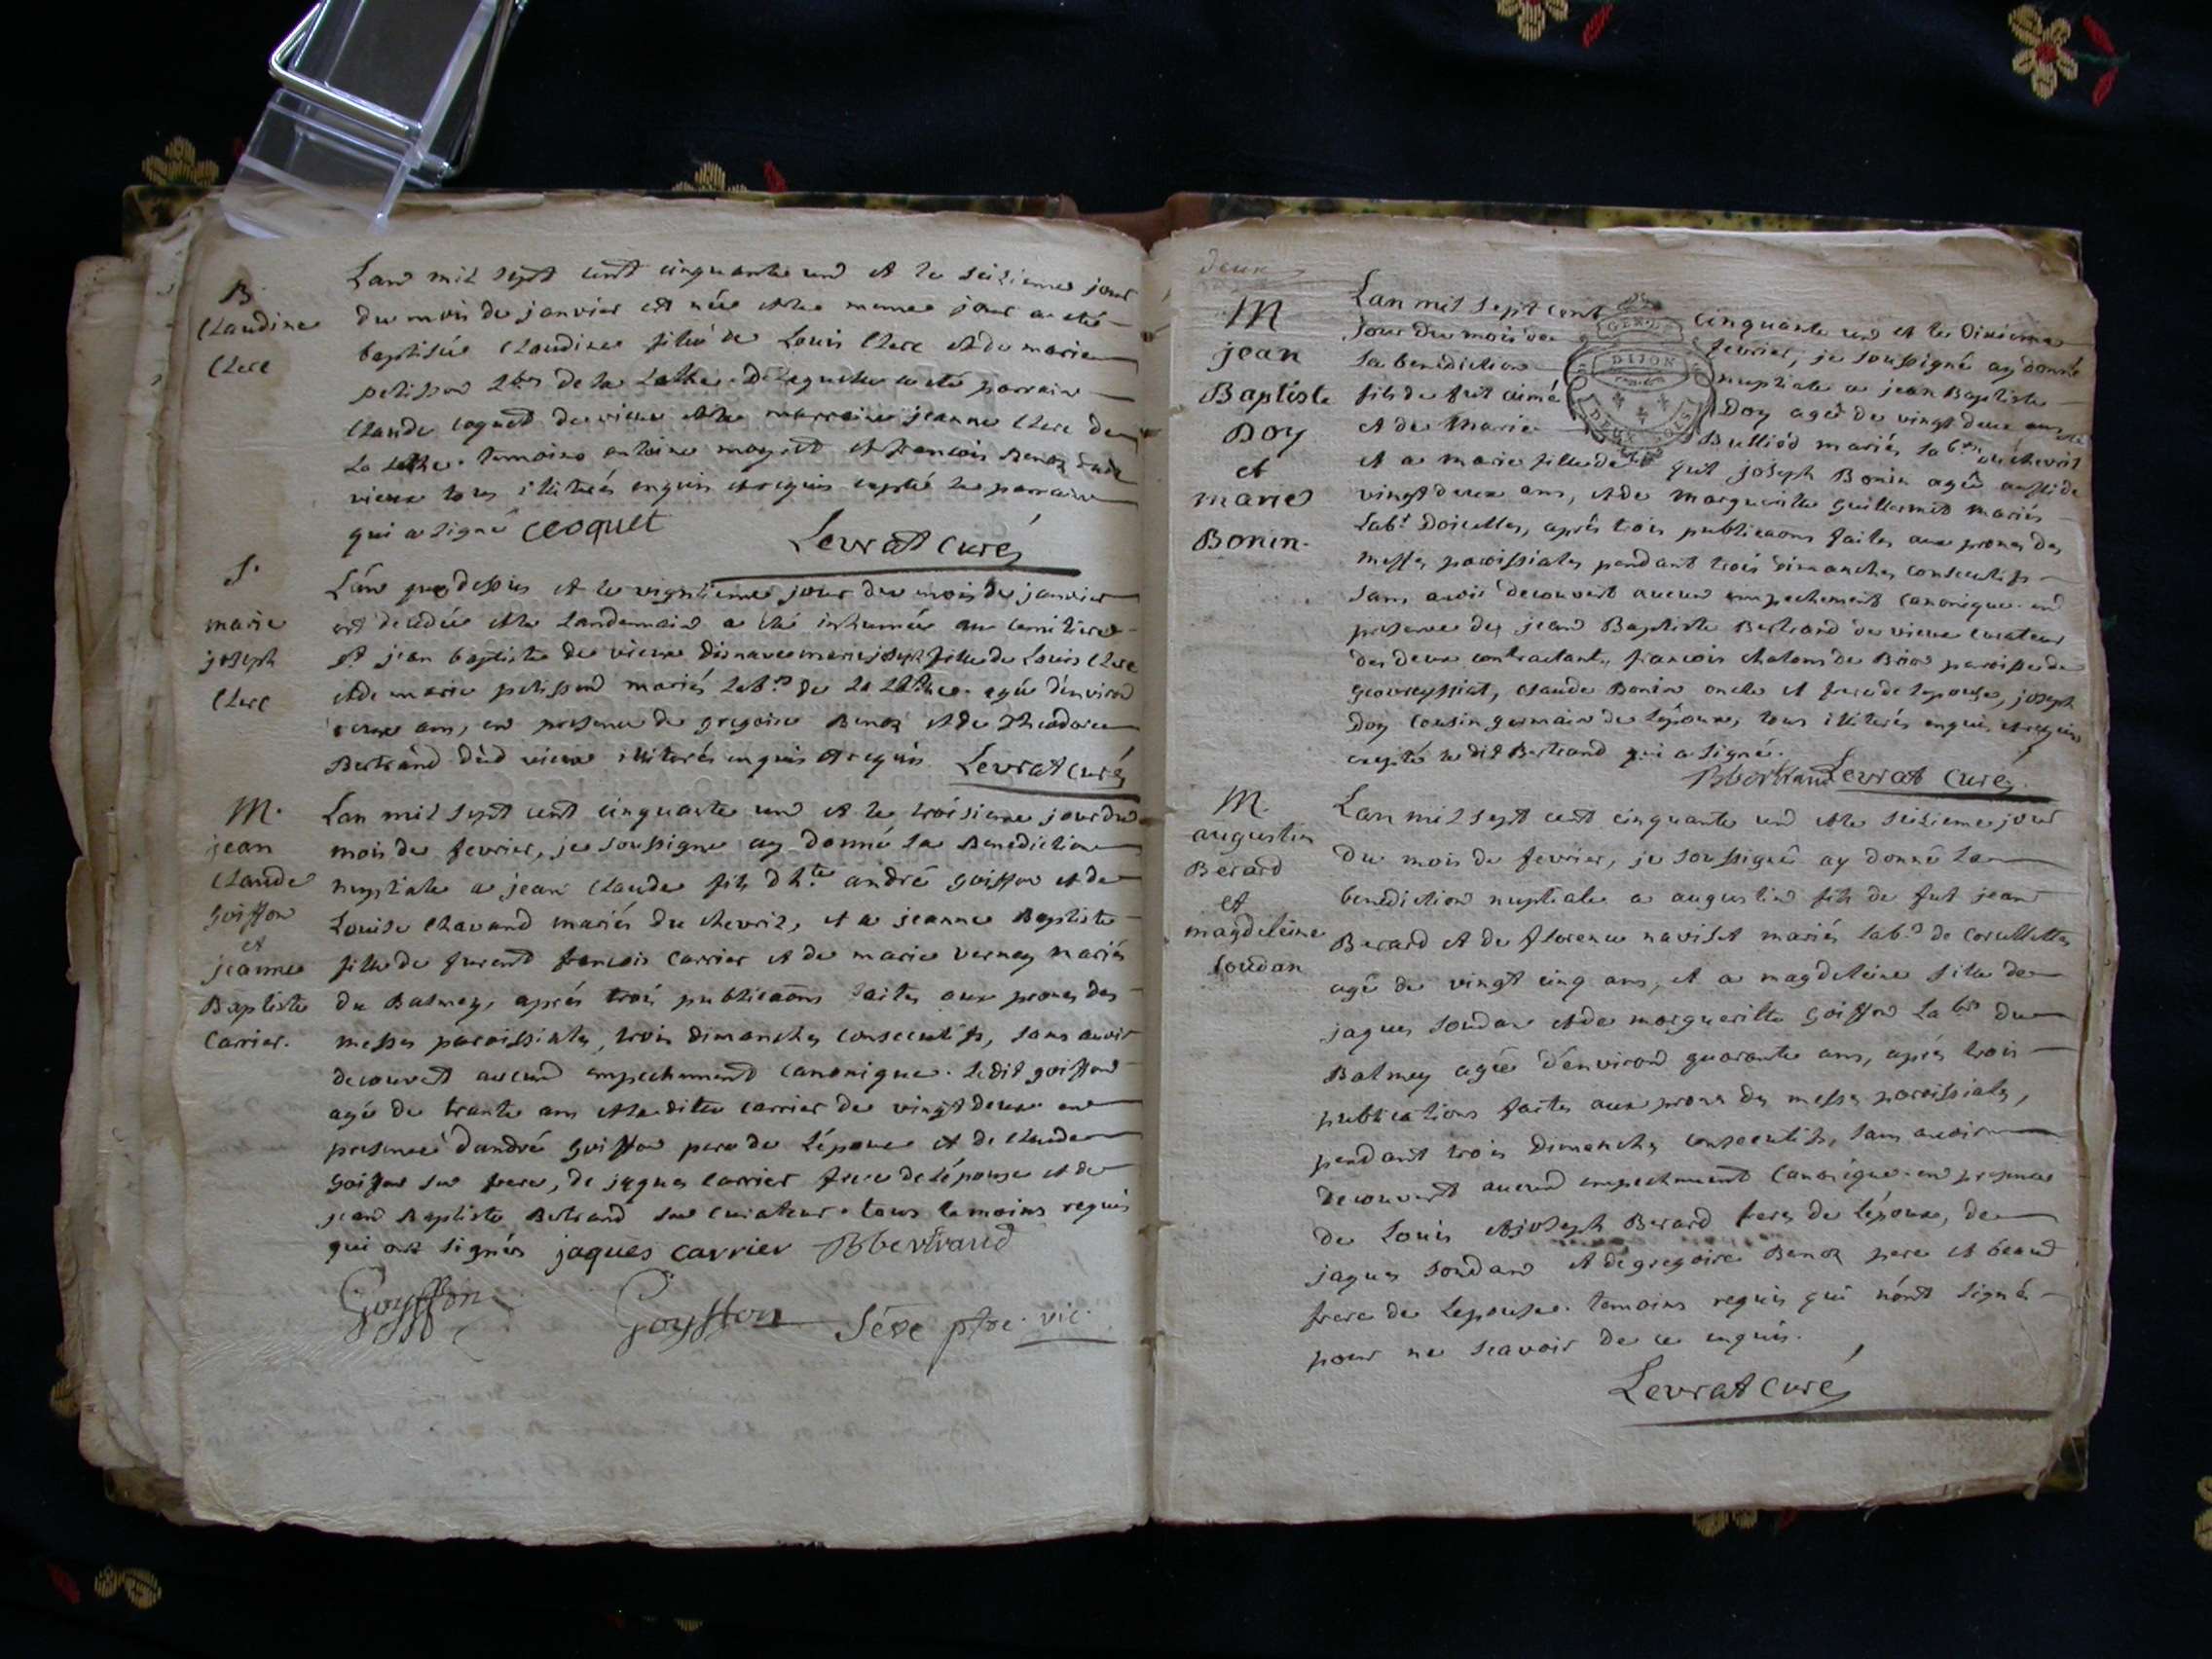 B.
Claudine
Clerc
Lan mil sept cent cinquante und et le seizieme jour
du mois de janvier est née et le meme jour a eté
baptisée Claudine fille de Louis Clerc et de marie
petisson lab.rs de la Lethe. de laquelle a eté parrain
Claude coquet de vieux et la marraine jeanne Clerc de
La Lethe. temoins antoine moyret et francois Benoz dud
vieux tous illiterés enquis et requis excepté le parrain
qui a signé ceoquet Levrat curé
S.
marie
joseph
Clerc
Lan que dessus et le vigntieme jour du mois de janvier
est decedée et le landemain a eté inhumée au cemitiere
st jean baptiste de vieux marie joseph fille de Louis Clerc
et de marie petissond mariés lab.rs de la Lethe. agée d'environ
deux ans, en presence de gregoire Benoz et de Theodore
Bertrand dud vieux illiterés enquis et requis. Levrat curé
M.
jean
Claude
Goiffon
et
jeanne
Baptiste
Carrier.
Lan mil sept cent cinquante und et le troisieme jour du
mois de fevrier, je soussigné ay donné la Benediction
nuptiale a jean Claude fils d h.te andré Goiffon et de
Louise Chavand mariés du chevril, et a jeanne Baptiste
fille de furent francois Carrier et de marie verney mariés
du Balmey, aprés trois publicaons faites aux prones des
messes paroissiales, trois dimanches consecutifs, sans avoir
decouvert aucund empechement canonique. ledit goiffon
agé de trante ans et laditte carrier de vingt deux en
presence d'andré Goiffon pere de l'époux et de Claude
Goiffon son frere, de jaques carrier frere de l'épouse et de
jean Baptiste Bertrand son curateur. tous temoins requis
qui ont signés jaques carrier JBbertrand
Goyffon Goyffon Séve ptre. vic.
deux
M
jean
Baptiste
Doy
et
marie
Bonin.
Lan mil sept cent cinquante und et le dixieme
jour du mois de fevrier, je soussigné ay donné
la benediction nuptiale a jean Baptiste
fils de fut aimé Doy agé de vingt deux ans
et de Marie Bulliod mariés lab.rs du chevril
et a marie fille de fut joseph Bonin agée aussi de
vingt deux ans, et de marguerite guillermet mariés
Lab.s Doicelles, aprés trois publicaons faites aux prones des
messes paroissiales pendant trois dimanches consecutifs
sans avoir decouvert aucun empechement canonique. en
presence des jean Baptiste Bertrand de vieux curateur
des deux contractants, francois chalons de Brion paroisse de
geovreyssiat, Claude Bonin oncle et frere de lepouse, joseph
Doy cousin germain de l'époux, tous illiterés enquis et requis
excepté le dit Bertrand qui a signé.
JBbertrand Levrat curé.
GEN.DE
DIJON
DEUX SOLS
M.
augustin
Berard
et
magdeleine
soudan
Lan mil sept cent cinquante und et le seizieme jour
du mois de fevrier, je soussigné ay donné la
benediction nuptiale a augustin fils de fut jean
Berard et de florence naviset mariés lab.s de Corcellettes
agé de vingt cinq ans, et a magdeleine fille de
jaques soudan et de marguerite Goiffon lab.rs du
Balmey agée d'environ quarante ans, aprés trois
publications faites aux prones des messes paroissiales,
pendant trois dimanches consecutifs, sans avoir
decouvert aucund empechement canonique. en presence
de Louis et joseph Berard freres de l'époux, de
jaques soudan et de gregoire Benoz pere et beau
frere de lepouse. temoins requis qui n'ont signé
pour ne scavoir de ce enquis.
Levrat curé